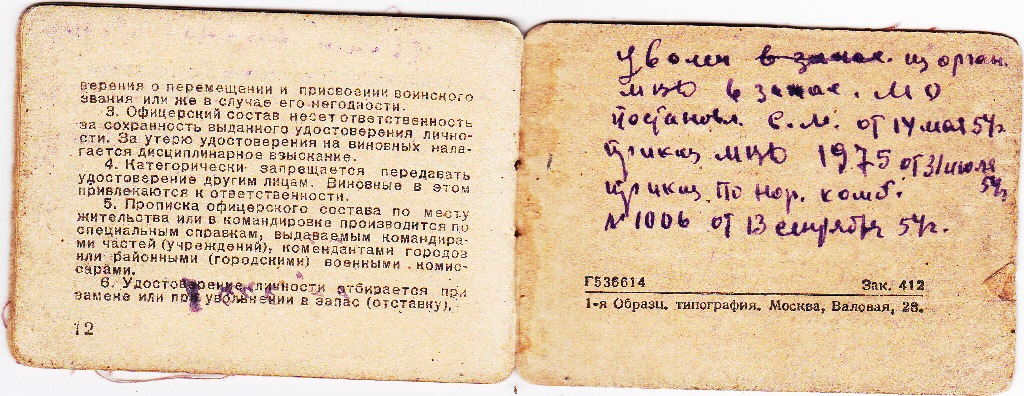 верения о перемещении и присвоении воинского
звания или же в случае его негодности.
3. Офицерский состав несет ответственность
за сохранность выданного удостоверения лично-
сти. За утерю удостоверения на виновных нала-
гается дисциплинарное взыскание.
4. Категорически запрещается передавать
удостоверение другим лицам. Виновные в этом
привлекаются к ответственности.
5. Прописка офицерского состава по месту
жительства или в командировке производится по
специальным справкам, выдаваемым командира-
ми частей (учреждений), комендантами городов
или районными (городскими) военными комис-
сарами.
6. Удостоверение личности отбирается при
замене или при увольнении в запас (отставку).
12
уволен в запас. из орган.
МВД в запас. МО
постановл. С.М. от 14 мая 54г.
приказ МВД 1975 от 31 июля
54г.
приказ по нор. комб.
№ 1006 от 13 сентября 54г.
Г536614 Зак. 412
1-я Образц. типография. Москва, Валовая, 28.